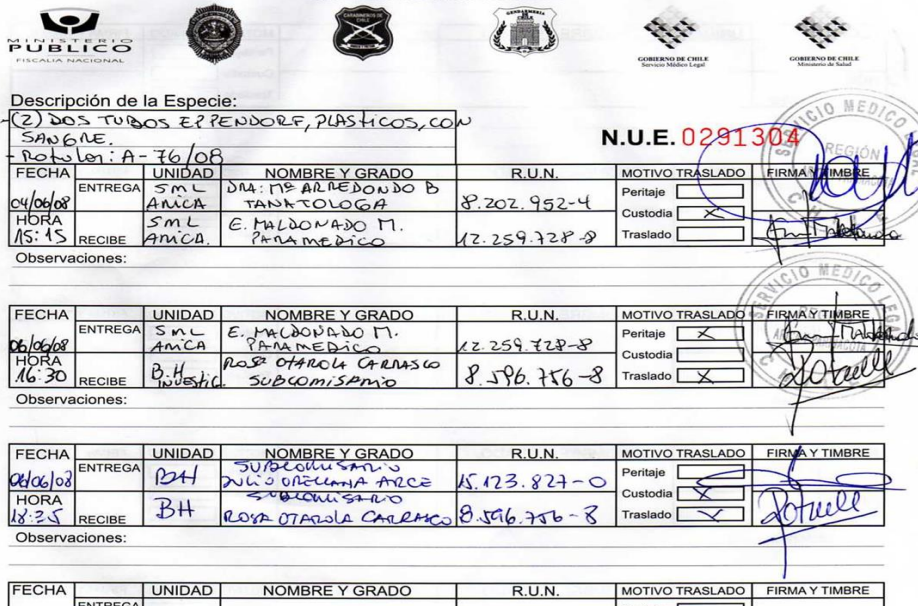 MINISTERIO
PUBLICO
FISCALIA NACIONAL
CARABINEROS DE CHILE
GENDARMERIA
CHILE
GOBIERNO DE CHILE
Servicio Médico Legal
GOBIERNO DE CHILE
Ministerio de Salud
Descripción de la Especie:
-(2) DOS TUBOS EPPENDORF, PLASTICOS, CON
SANGRE.
- Rotulos: A-76/08
N.U.E. 0291304
SERVICIO MEDICO LEGAL
REGIÓN
FECHA UNIDAD NOMBRE Y GRADO R.U.N. MOTIVO TRASLADO FIRMA Y TIMBRE
04/06/08 ENTREGA SML ARICA DRA: Mª ARREDONDO B TANATOLOGA 8.202.952-4 Peritaje
HORA Custodia X
15:15 RECIBE SML ARICA. E. MALDONADO M. PARAMEDICO 12.259.728-8 Traslado
Observaciones:
SERVICIO MEDICO LEGAL
FECHA UNIDAD NOMBRE Y GRADO R.U.N. MOTIVO TRASLADO FIRMA Y TIMBRE
06/06/08 ENTREGA SML ARICA E. MALDONADO M. PARAMEDICO 12.259.728-8 Peritaje X
HORA Custodia
16:30 RECIBE B.H. INVESTIG. ROSA OTAROLA CARRASCO SUBCOMISARIO 8.596.756-8 Traslado X
Observaciones:
FECHA UNIDAD NOMBRE Y GRADO R.U.N. MOTIVO TRASLADO FIRMA Y TIMBRE
06/06/08 ENTREGA BH SUBCOMISARIO JULIO ORELLANA ARCE 15.123.827-0 Peritaje
HORA Custodia X
18:35 RECIBE BH SUBCOMISARIO ROSA OTAROLA CARRASCO 8.596.756-8 Traslado X
Observaciones:
FECHA UNIDAD NOMBRE Y GRADO R.U.N. MOTIVO TRASLADO FIRMA Y TIMBRE
ENTREGA